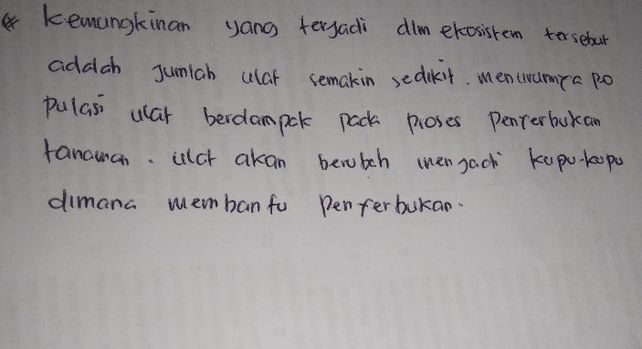 Kemungkinan yang terjadi dlm ekosistem tersebut
adalah jumlah ulat semakin sedikit. menurunnya po
pulasi ulat berdampak pada proses Penyerbukan
tanaman. ulat akan berubah menjadi kupu-kupu
dimana membantu Penyerbukan.